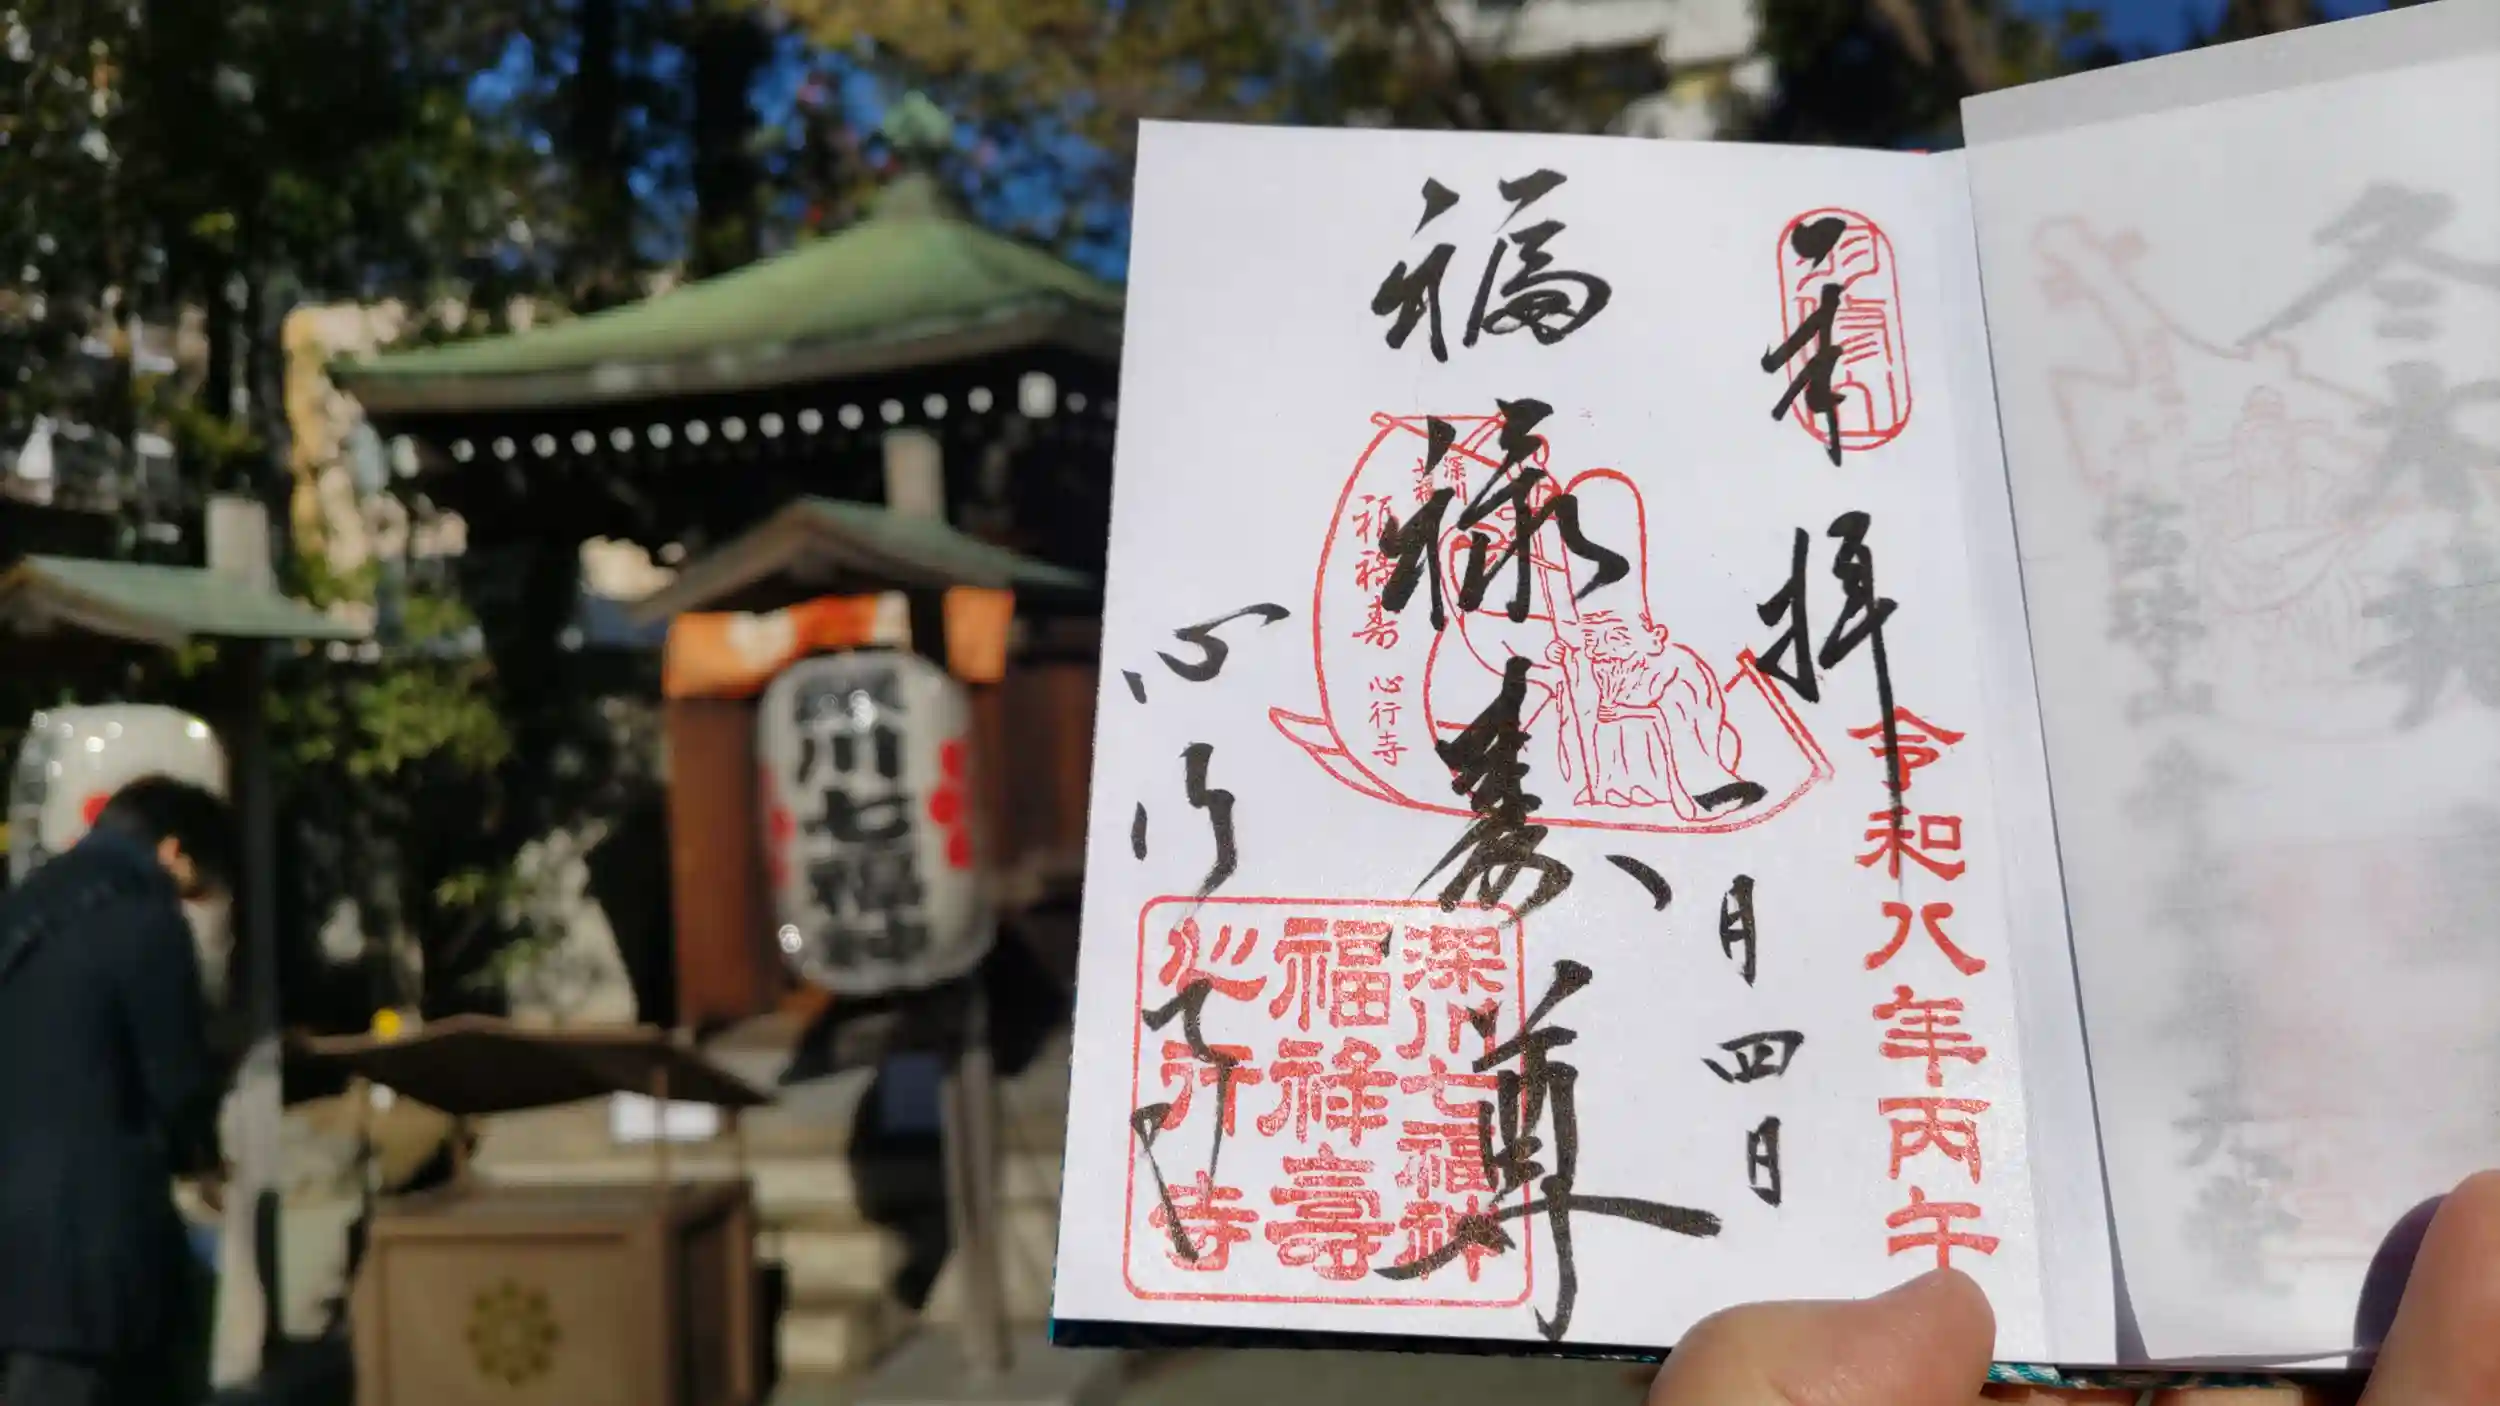 奉拝
令和八年丙午
一月四日
福禄寿尊
心行寺
深川七福神
福禄壽
心行寺
深川
福禄寿 心行寺
川七福神